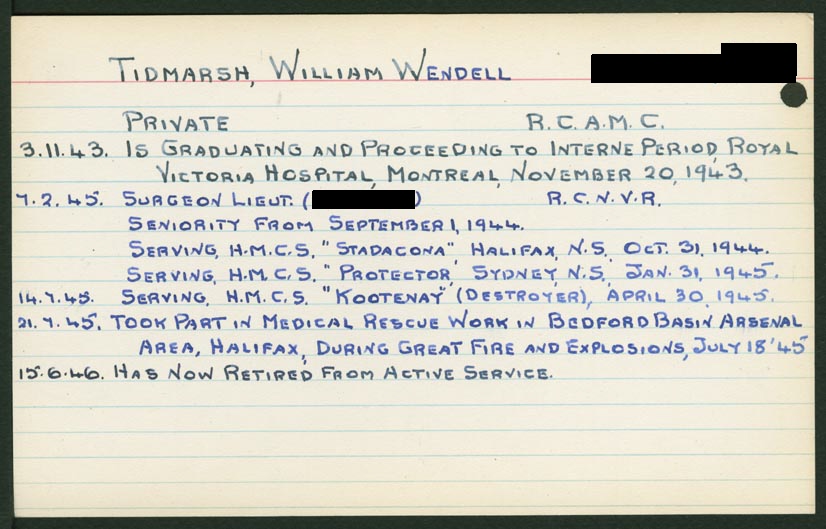 TIDMARSH, WILLIAM WENDELL
PRIVATE R.C.A.M.C.
3.11.43. IS GRADUATING AND PROCEEDING TO INTERNE PERIOD, ROYAL
VICTORIA HOSPITAL, MONTREAL, NOVEMBER 20, 1943.
7.2.45. SURGEON LIEUT. ( ) R.C.N.V.R.
SENIORITY FROM SEPTEMBER 1, 1944.
SERVING, H.M.C.S. "STADACONA", HALIFAX, N.S. OCT. 31, 1944.
SERVING, H.M.C.S. "PROTECTOR, SYDNEY, N.S, JAN. 31, 1945.
14.7.45. SERVING, H.M.C.S. "KOOTENAY" (DESTROYER), APRIL 30, 1945.
21.7.45. TOOK PART IN MEDICAL RESCUE WORK IN BEDFORD BASIN ARSENAL
AREA, HALIFAX, DURING GREAT FIRE AND EXPLOSIONS, JULY 18 '45
15.6.46. HAS NOW RETIRED FROM ACTIVE SERVICE.